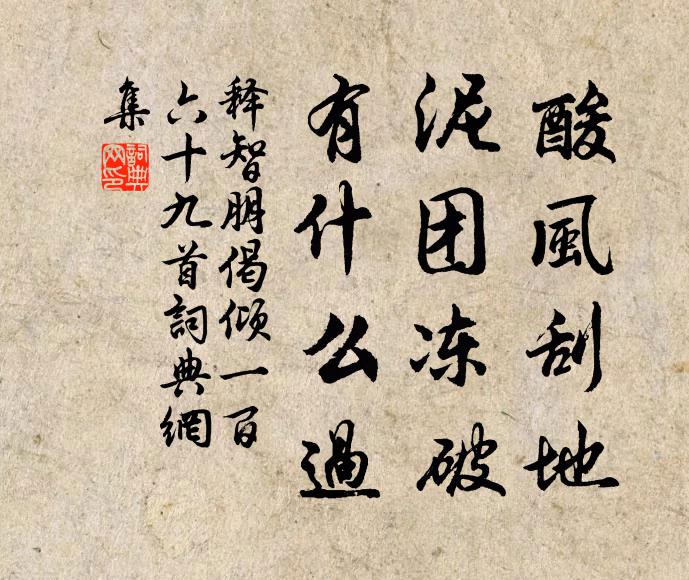 酸風刮地
泥团冻破
有什么過
释智朋偈倾一百
六十九首詞典網
集
詞典
网印